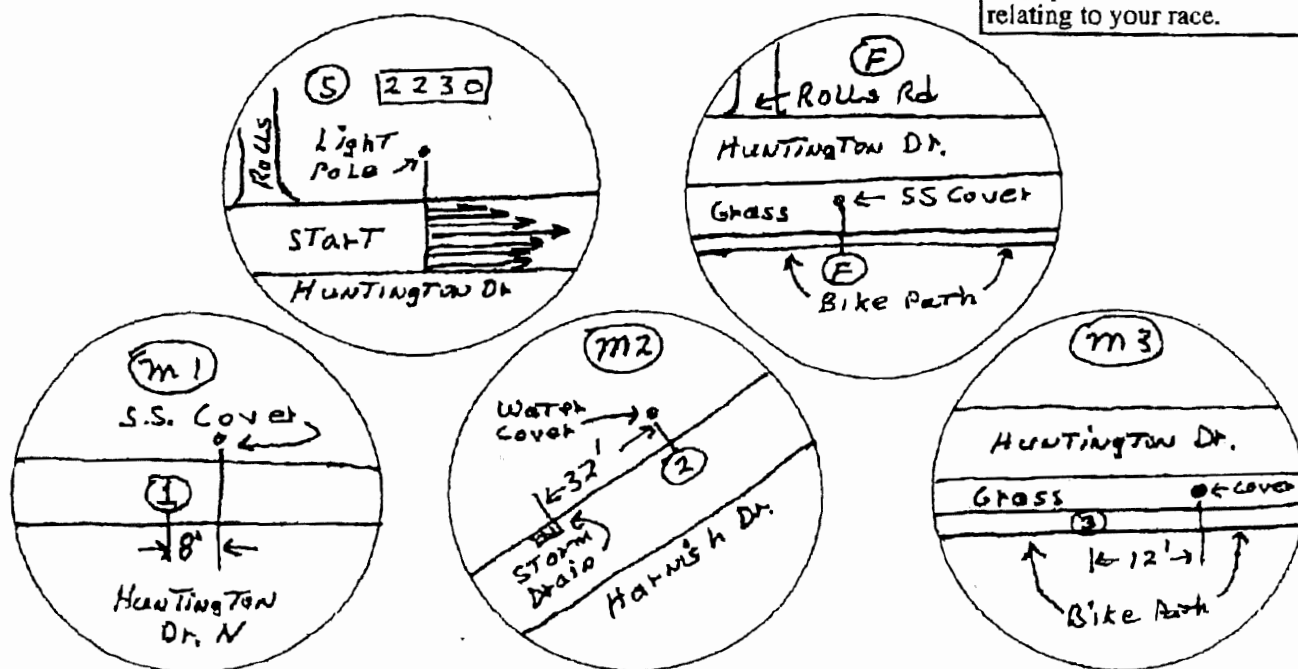 relating to your race.
S 2230
Rolls
Light
Pole
Start
Huntington Dr
F
Rolls Rd
Huntington Dr.
Grass
SS Cover
F
Bike Path
M1
S.S. Cover
1
8'
Huntington
Dr. N
M2
Water
Cover
32'
2
Storm
Drain
Harnish Dr.
M3
Huntington Dr.
Grass
Cover
3
12'
Bike Path